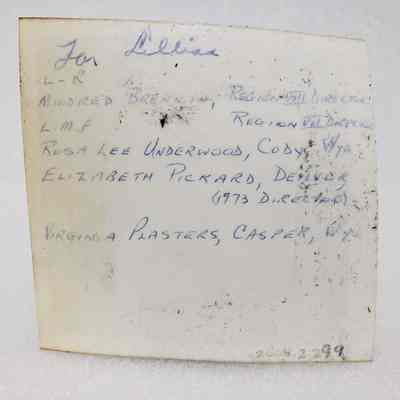 For Lillian
L-R
Mildred Brennin, Region VIII Director
L.M.F Region VIII Director
Rosa Lee Underwood, Cody, Wyo
Elizabeth Pickard, Denver
(1973 Director)
Virginia Plasters, Casper, Wyo.
299